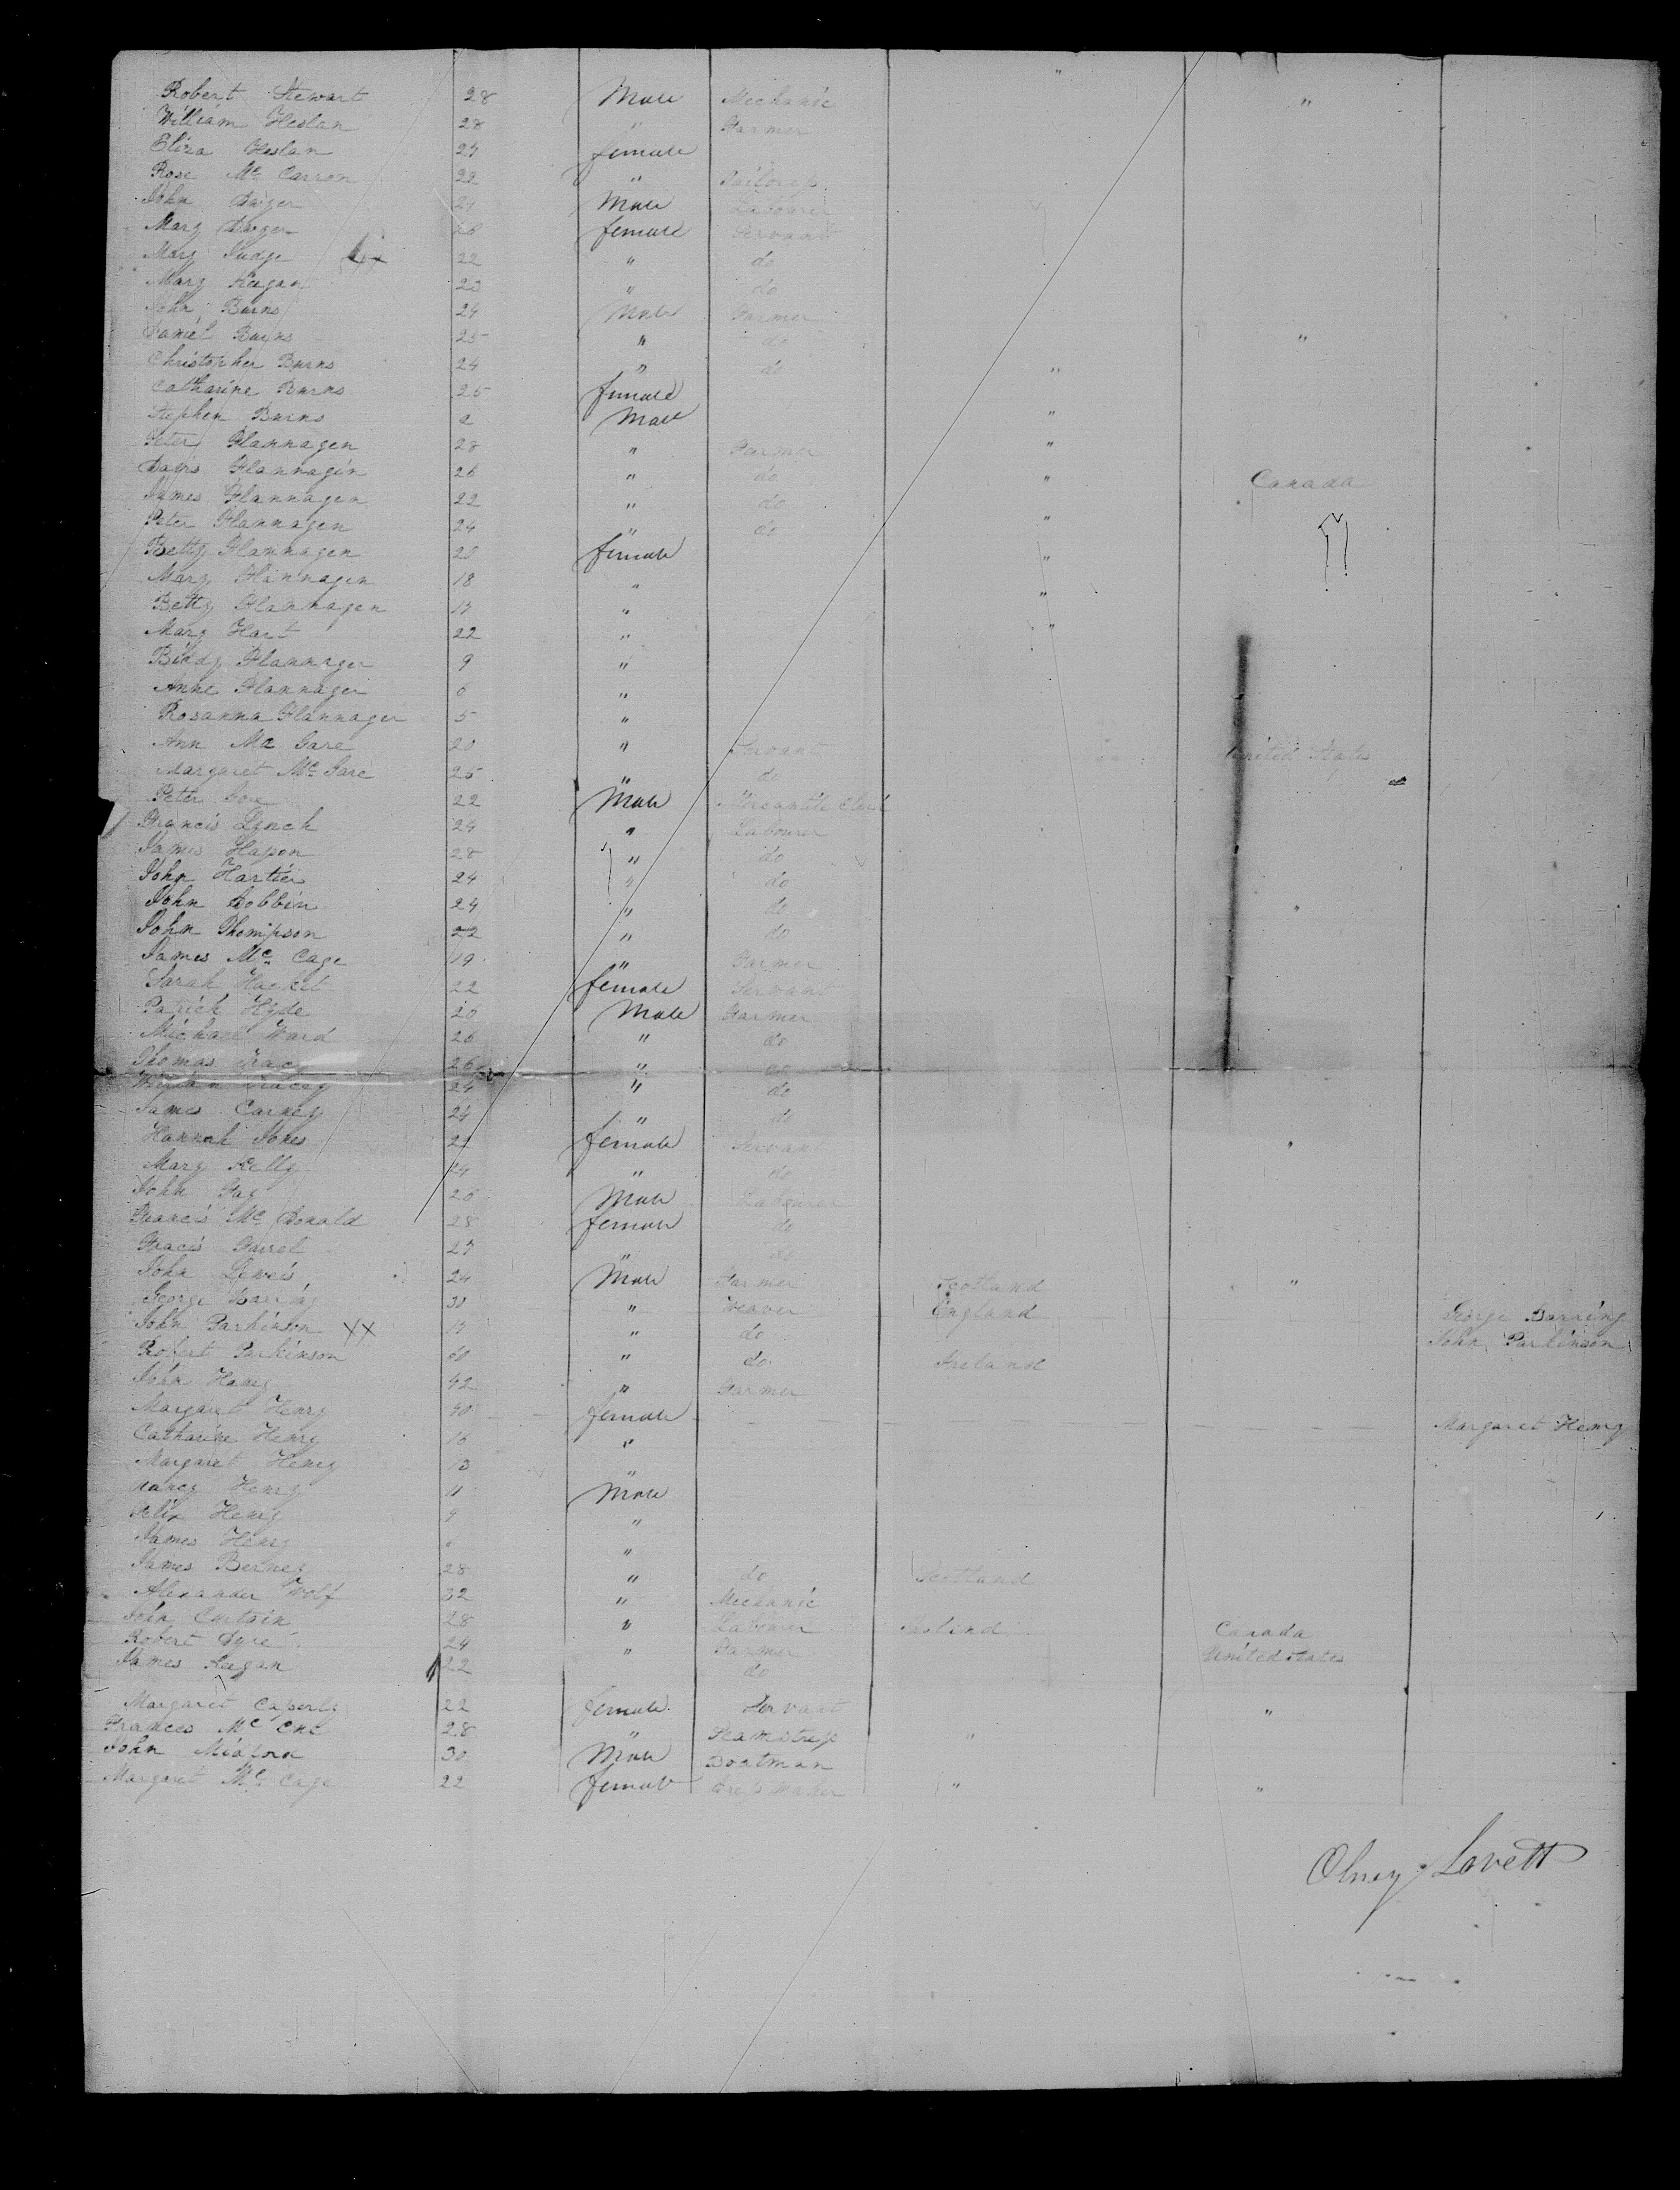 Robert Stewart 28 Male Mechanic " "
William Heslan 28 " Farmer
Eliza Heslan 27 female
Rose Mc Carron 22 " Tailoress
John Dwyer 24 Male Labourer
Mary Dwyer 26 female Servant
Mary Judge 22 " do
Mary Keegan 23 " do
John Burns 24 Male Farmer
Daniel Burns 25 " do "
Christopher Burns 24 " do "
Catharine Burns 25 female
Stephen Burns Male "
Peter Flannagen 28 " Farmer "
Flannagen 26 " do " Canada
James Flannagen 22 " do
Peter Flannagen 24 " do "
Betty Flannagen 20 female "
Mary Flannagen 18 "
Betty Flannagen 17 " "
Mary Hart 22 " "
Biddy Flannager 9 "
Anne Flannager 6 "
Rosanna Flannager 5 "
Ann Mc Gare 20 " Servant United States
Margaret Mc Gare 25 " do
Peter 22 Male Mercantile Clerk
Francis Lynch 24 " Labourer
James Hapon 28 " do
John Hartier 24 " do
John Dobbin 24 " do "
John Thompson 22 " do
James Mc Cage 19 " Farmer
Sarah Hacket 22 female Servant
Patrick Hyde 20 Male Farmer
Michael Ward 26 " do
Thomas Tracy 26 " do
Tracey 24 " do
James Carney 24 " do
Hannah Jones 21 female Servant "
Mary Kelly 24 " do
John 26 Male Labourer
Francis Mc Donald 28 female do
Farrel 27 " do
John Lewis 24 Male Farmer Scotland "
George Barring 30 " Weaver England George Barring
John Parkinson XX 17 " do John Parkinson
Robert Parkinson 60 " do Ireland
John Henry 42 " Farmer
Margaret Henry 40 female Margaret Henry
Catharine Henry 16 "
Margaret Henry 13 "
Nancy Henry 11 Male
Felix Henry 9 "
James Henry "
James Berney 28 " do Scotland
Alexander Wolf 32 " Mechanic
John Curtain 28 " Labourer Ireland Canada
Robert Dyre 24 " Farmer United States
James Keegan 22 do
Margaret 22 female Servant "
Frances Mc 28 " Seamstress "
John Midford 30 Male Boatman
Margaret Mc Cage 22 female Dress Maker " "
Olney Lovett